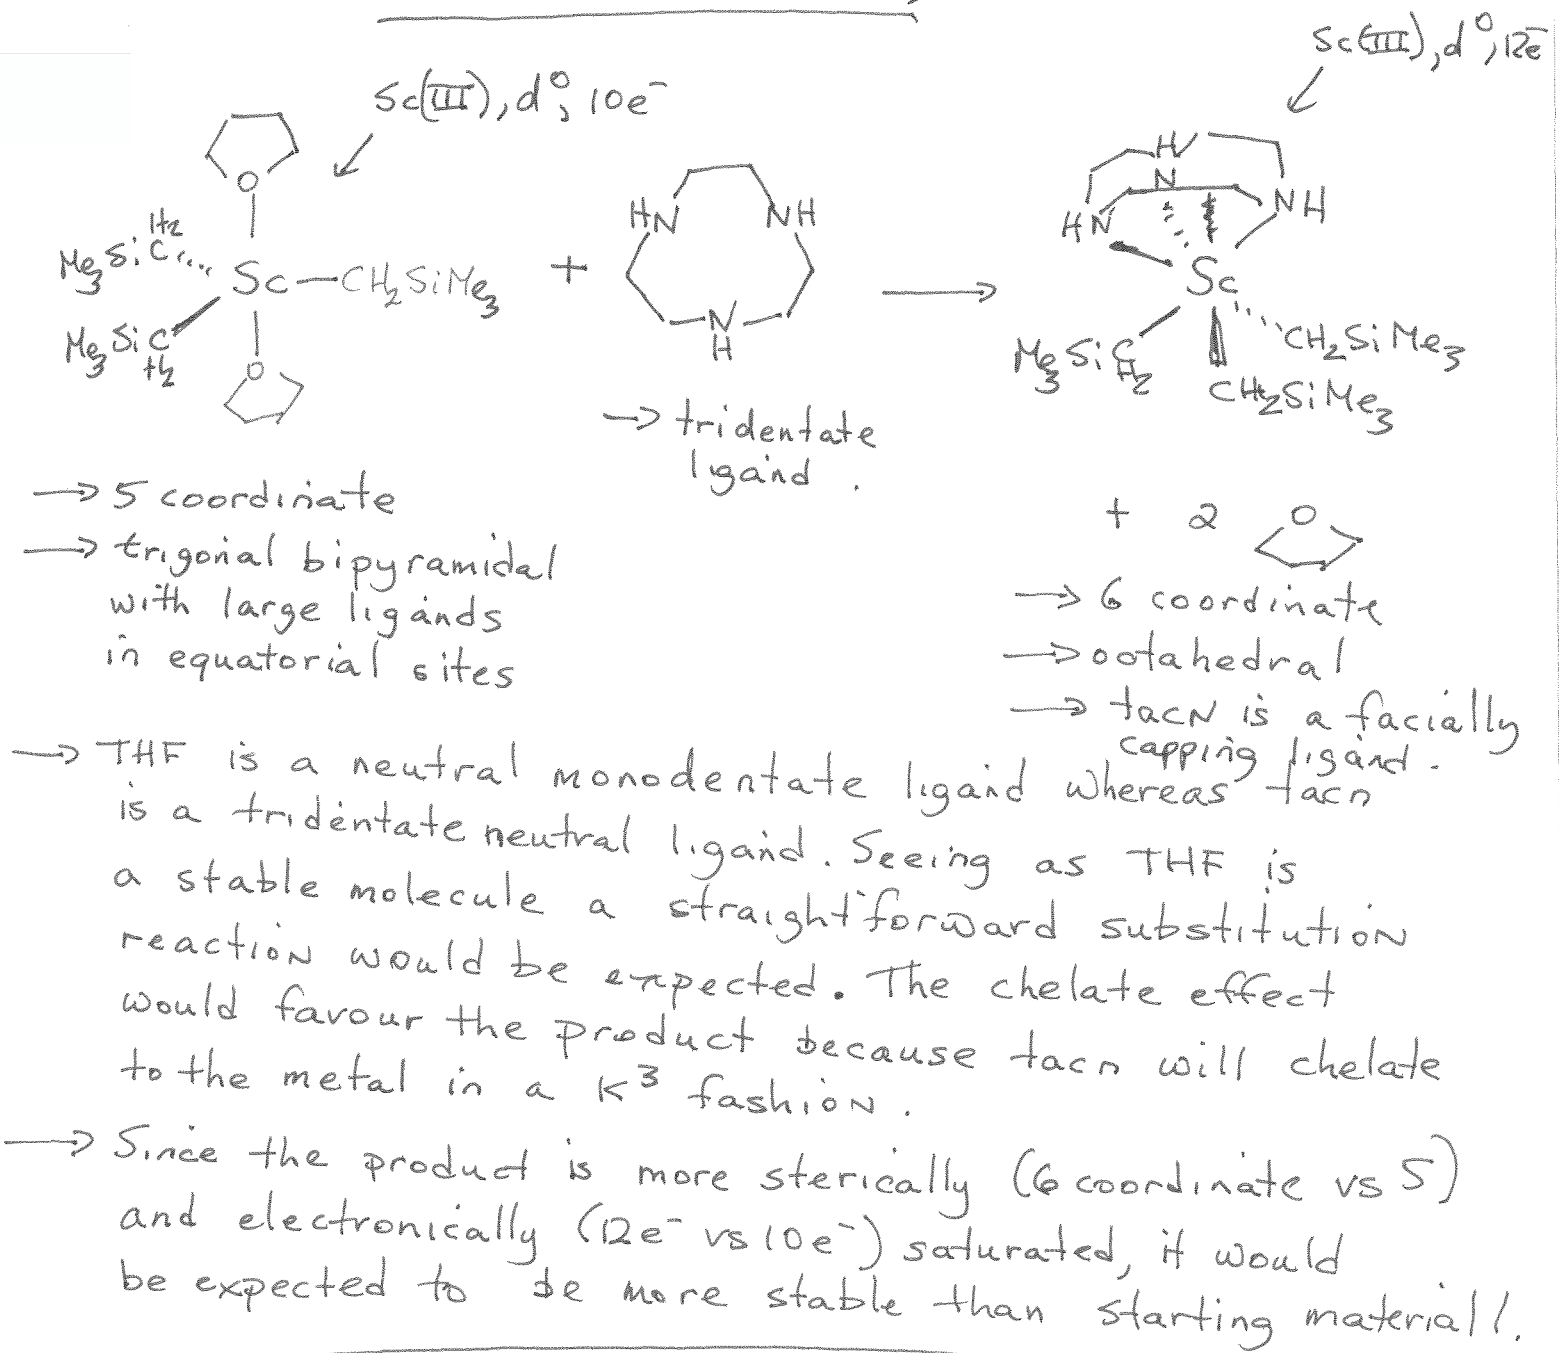 Sc(III), d⁰, 12e⁻
Sc(III), d⁰, 10e⁻
O
Me₃SiCH₂
Sc—CH₂SiMe₃
Me₃SiCH₂
O
+
HN
NH
N
H
H
N
HN
NH
Sc
Me₃SiCH₂
CH₂SiMe₃
CH₂SiMe₃
→ tridentate
ligand.
→ 5 coordinate
→ trigonal bipyramidal
with large ligands
in equatorial sites
+ 2 O
→ 6 coordinate
→ octahedral
→ tacN is a facially
capping ligand.
→ THF is a neutral monodentate ligand whereas tacn
is a tridentate neutral ligand. Seeing as THF is
a stable molecule a straightforward substitution
reaction would be expected. The chelate effect
would favour the product because tacn will chelate
to the metal in a K³ fashion.
→ Since the product is more sterically (6 coordinate vs 5)
and electronically (12e⁻ vs 10e⁻) saturated, it would
be expected to be more stable than starting material!.